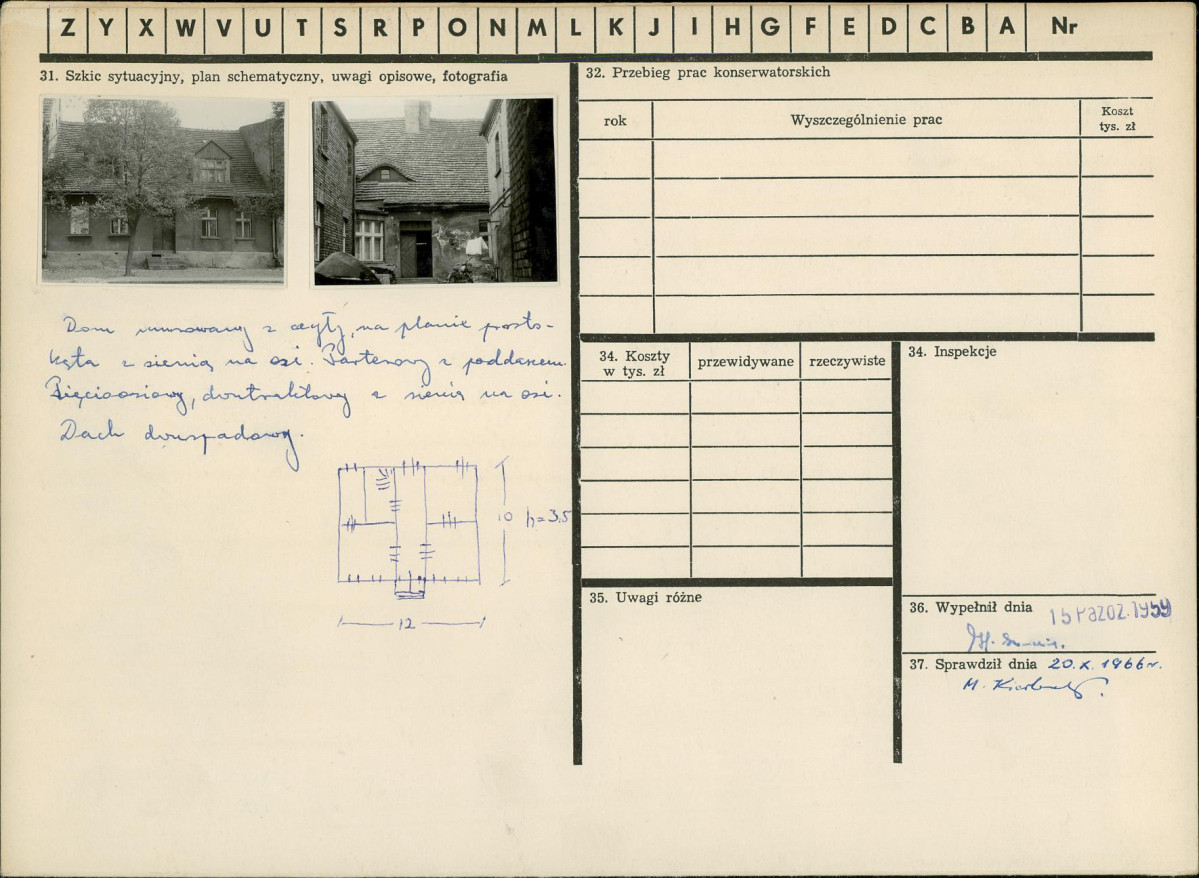 Z Y X W V U T S R P O N M L K J I H G F E D C B A Nr
31. Szkic sytuacyjny, plan schematyczny, uwagi opisowe, fotografia
Dom murowany z cegły, na planie prosto-
kąta z sienią na osi. Parterowy z poddaszem.
Pięcioosiowy, dwutraktowy z sienią na osi.
Dach dwuspadowy.
10 h=3,5
12
32. Przebieg prac konserwatorskich
rok Wyszczególnienie prac Koszt
tys. zł
34. Koszty
w tys. zł przewidywane rzeczywiste
34. Inspekcje
35. Uwagi różne
36. Wypełnił dnia 15 PAZDZ. 1959
37. Sprawdził dnia 20.X.1966 r.
M.